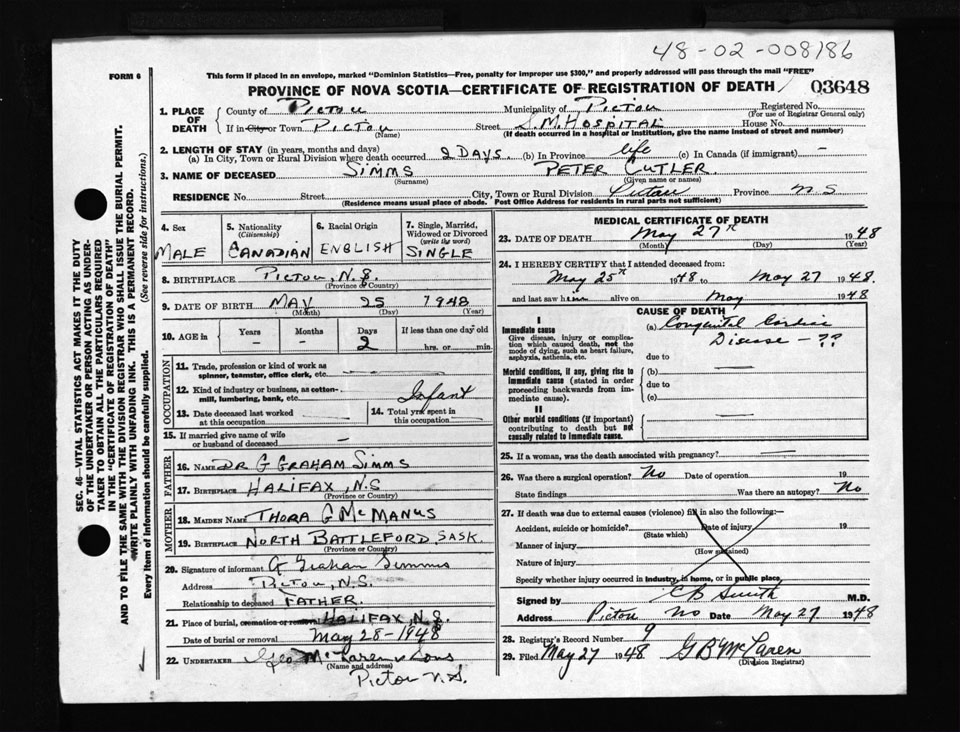 48-02-008186
FORM 6
This form if placed in an envelope, marked "Dominion Statistics—Free, penalty for improper use $300," and properly addressed will pass through the mail "FREE"
PROVINCE OF NOVA SCOTIA—CERTIFICATE OF REGISTRATION OF DEATH 03648
1. PLACE OF DEATH
County of Pictou Municipality of Pictou Registered No.
(For use of Registrar General only)
If in City or Town Pictou Street S.M. Hospital House No.
(Name) (If death occurred in a hospital or institution, give the name instead of street and number)
2. LENGTH OF STAY (in years, months and days)
(a) In City, Town or Rural Division where death occurred 2 Days. (b) In Province life (c) In Canada (if immigrant) —
3. NAME OF DECEASED SIMMS PETER CUTLER
(Surname) (Given name or names)
RESIDENCE No. Street City, Town or Rural Division Pictou Province N S
(Residence means usual place of abode. Post Office Address for residents in rural parts not sufficient)
4. Sex
MALE
5. Nationality
(Citizenship)
CANADIAN
6. Racial Origin
ENGLISH
7. Single, Married, Widowed or Divorced
(write the word)
SINGLE
8. BIRTHPLACE PICTOU, N.S.
(Province or Country)
9. DATE OF BIRTH MAY 25 1948
(Month) (Day) (Year)
10. AGE in
Years Months Days If less than one day old
— — 2 hrs. or min.
OCCUPATION
11. Trade, profession or kind of work as spinner, teamster, office clerk, etc.
12. Kind of industry or business, as cotton-mill, lumbering, bank, etc. Infant
13. Date deceased last worked at this occupation
14. Total yrs. spent in this occupation
15. If married give name of wife or husband of deceased —
FATHER
16. NAME DR G GRAHAM SIMMS
17. Birthplace HALIFAX, N.S
(Province or Country)
MOTHER
18. MAIDEN NAME THORA G MCMANUS
19. Birthplace NORTH BATTLEFORD, SASK.
(Province or Country)
20. Signature of informant G Graham Simms
Address PICTOU, N.S.
Relationship to deceased FATHER.
21. Place of burial, cremation or removal HALIFAX, N.S.
Date of burial or removal May 28-1948
22. UNDERTAKER Geo McLaren & Sons
(Name and address)
Pictou N.S.
MEDICAL CERTIFICATE OF DEATH
23. DATE OF DEATH May 27th 1948
(Month) (Day) (Year)
24. I HEREBY CERTIFY that I attended deceased from:
May 25th 1948 to May 27 1948.
and last saw h alive on May 1948
CAUSE OF DEATH
I
Immediate cause
Give disease, injury or complication which caused death, not the mode of dying, such as heart failure, asphyxia, asthenia, etc.
(a) Congenital Cardiac
Disease - ??
due to
Morbid conditions, if any, giving rise to immediate cause (stated in order proceeding backwards from immediate cause).
(b)
due to
(c)
II
Other morbid conditions (if important) contributing to death but not causally related to immediate cause.
25. If a woman, was the death associated with pregnancy? —
26. Was there a surgical operation? No Date of operation 19
State findings Was there an autopsy? No
27. If death was due to external causes (violence) fill in also the following:—
Accident, suicide or homicide? Date of injury 19
(State which)
Manner of injury
(How sustained)
Nature of injury
Specify whether injury occurred in industry, in home, or in public place.
Signed by Smith M.D.
Address Pictou Date May 27 1948
28. Registrar's Record Number 9
29. Filed May 27 1948 G B McLaren
(Division Registrar)
SEC. 46—VITAL STATISTICS ACT MAKES IT THE DUTY
OF THE UNDERTAKER OR PERSON ACTING AS UNDER-
TAKER TO OBTAIN ALL THE PARTICULARS REQUIRED
IN THE "CERTIFICATE OF REGISTRATION OF DEATH"
AND TO FILE THE SAME WITH THE DIVISION REGISTRAR WHO SHALL ISSUE THE BURIAL PERMIT.
WRITE PLAINLY WITH UNFADING INK. THIS IS A PERMANENT RECORD.
Every item of Information should be carefully supplied. (See reverse side for instructions.)